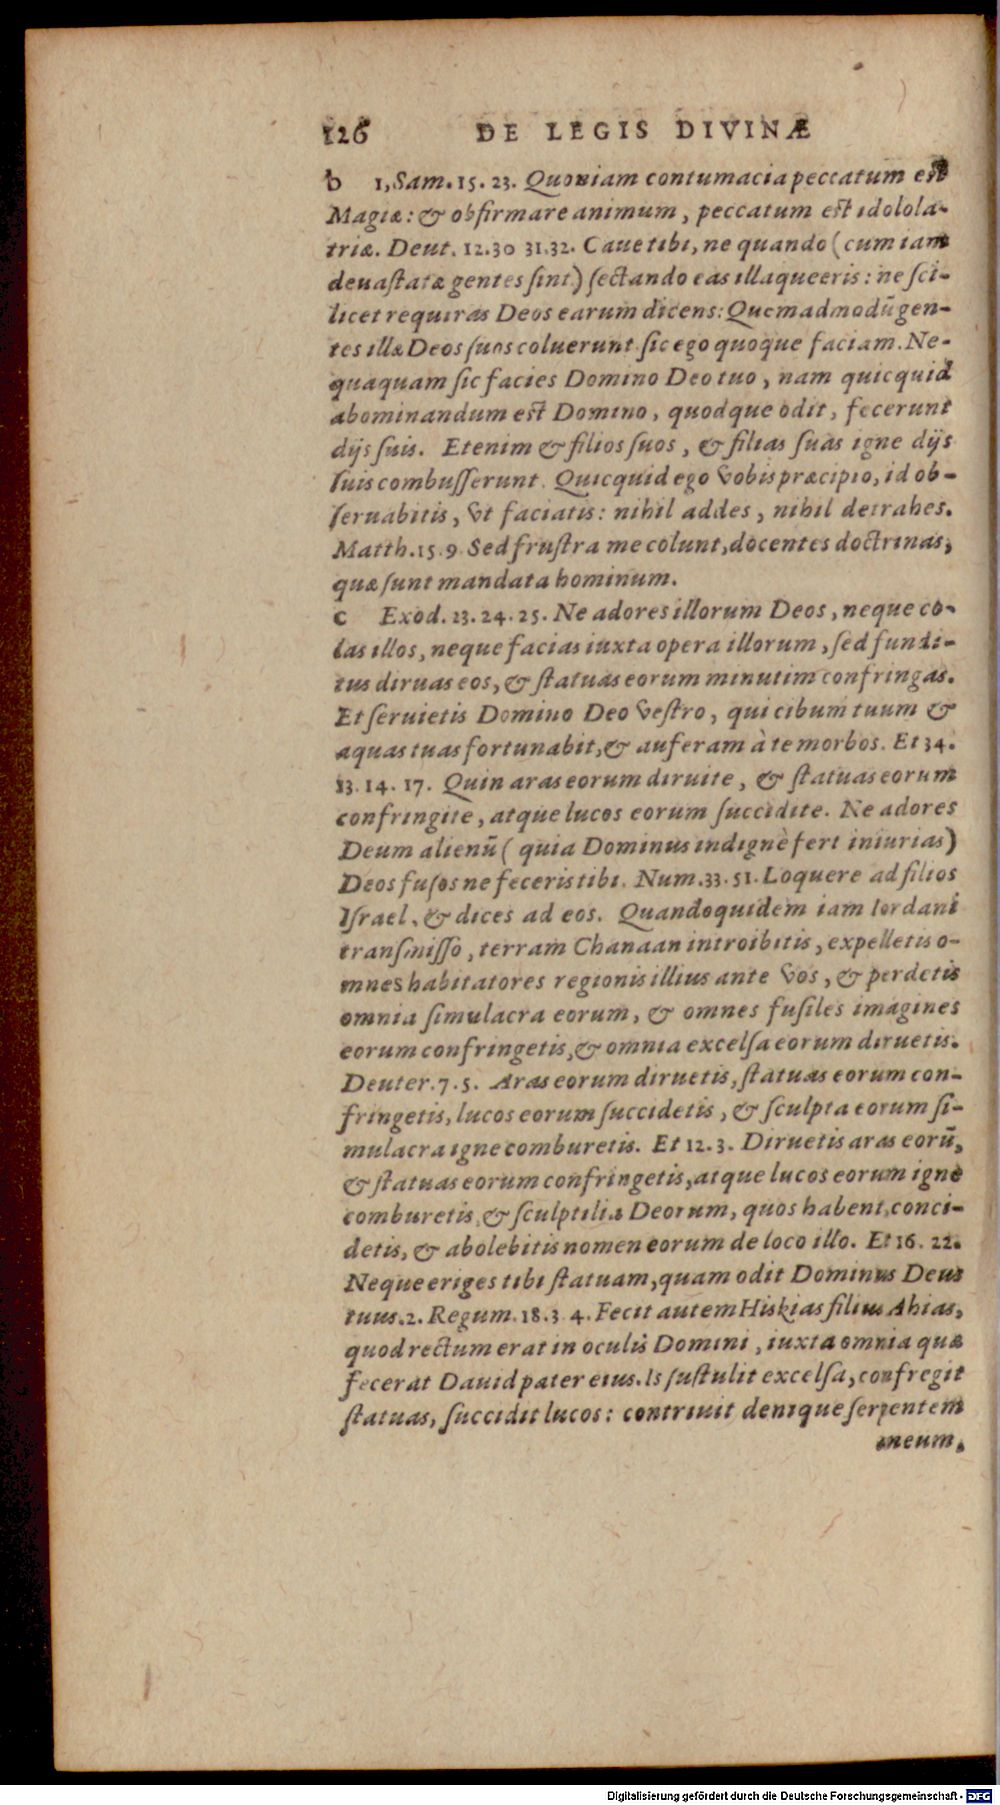 126 DE LEGIS DIVINÆ
b 1, Sam. 15. 23. Quoniam contumacia peccatum est
Magiæ: & obfirmare animum, peccatum est idolola-
triæ. Deut. 12.30 31.32. Cave tibi, ne quando (cum iam
deuastatæ gentes sint) sectando eas illaqueeris: ne sci-
licet requiras Deos earum dicens: Quemadmodū gen-
tes illæ Deos suos coluerunt sic ego quoque faciam. Ne-
quaquam sic facies Domino Deo tuo, nam quicquid
abominandum est Domino, quodque odit, fecerunt
dijs suis. Etenim & filios suos, & filias suas igne dijs
suis combusserunt. Quicquid ego vobis præcipio, id ob-
seruabitis, vt faciatis: nihil addes, nihil detrahes.
Matth. 15 9. Sed frustra me colunt, docentes doctrinas,
quæ sunt mandata hominum.
c Exod. 23. 24. 25. Ne adores illorum Deos, neque co-
las illos, neque facias iuxta opera illorum, sed fundi-
tus diruas eos, & statuas eorum minutim confringas.
Et seruietis Domino Deo vestro, qui cibum tuum &
aquas tuas fortunabit, & auferam à te morbos. Et 34.
13. 14. 17. Quin aras eorum diruite, & statuas eorum
confringite, atque lucos eorum succidite. Ne adores
Deum alienū (quia Dominus indignè fert iniurias)
Deos fusos ne feceris tibi. Num. 33. 51. Loquere ad filios
Israel, & dices ad eos. Quandoquidem iam Iordani
transmisso, terram Chanaan introibitis, expelletis o-
mnes habitatores regionis illius ante vos, & perdetis
omnia simulacra eorum, & omnes fusiles imagines
eorum confringetis, & omnia excelsa eorum diruetis.
Deuter. 7. 5. Aras eorum diruetis, statuas eorum con-
fringetis, lucos eorum succidetis, & sculpta eorum si-
mulacra igne comburetis. Et 12. 3. Diruetis aras eorū,
& statuas eorum confringetis, atque lucos eorum igne
comburetis, & sculptilia Deorum, quos habent, conci-
detis, & abolebitis nomen eorum de loco illo. Et 16. 22.
Neque eriges tibi statuam, quam odit Dominus Deus
tuus. 2. Regum. 18. 3 4. Fecit autem Hiskias filius Ahias,
quod rectum erat in oculis Domini, iuxta omnia quæ
fecerat Dauid pater eius. Is sustulit excelsa, confregit
statuas, succidit lucos: contriuit denique serpentem
æneum,
Digitalisierung gefördert durch die Deutsche Forschungsgemeinschaft - DFG